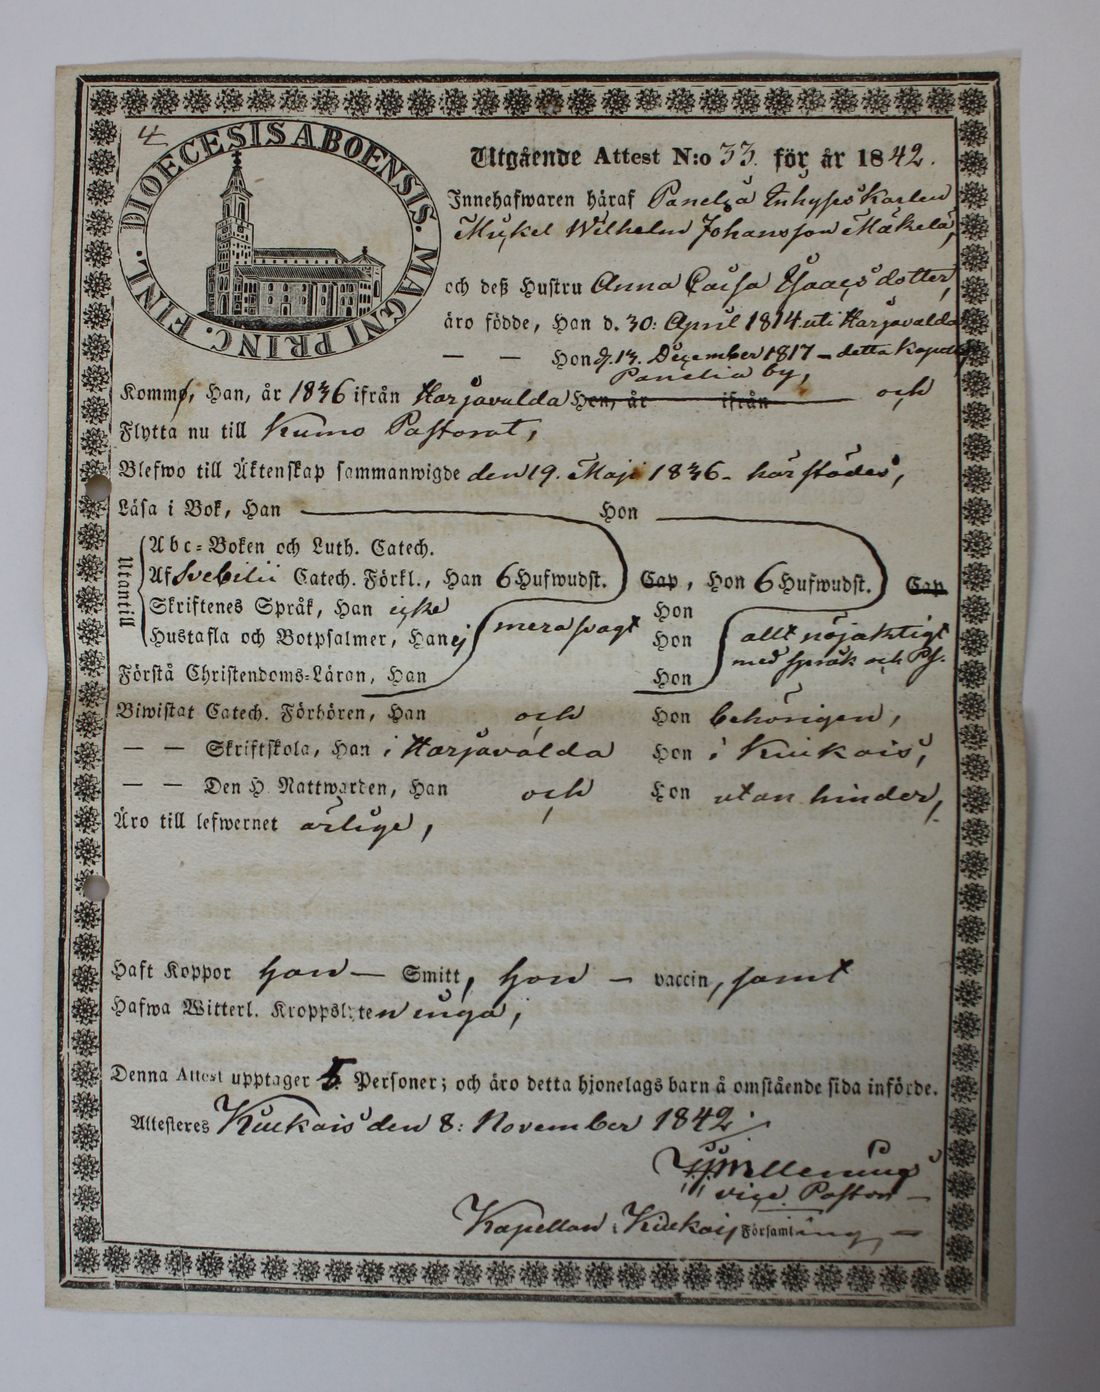 4
DIOECESIS ABOENSIS. MAGNI PRINC. FINL.
Utgående Attest N:o 33. för år 1842.
Innehafwaren häraf Panelia Inhyses Karlen
Mickel Wilhelm Johansson Mäkelä,
och deß Hustru Anna Caisa Isaacsdotter,
äro födde, Han d. 30: April 1814 uti Harjavalda
— — Hon d. 13. December 1817 – detta Kapell
Panelia by,
Kommo, Han, år 1836 ifrån Harjavalda Hon, år ifrån och
Flytta nu till Kumo Pastorat,
Blefwo till Äktenskap sammanwigde den 19. Maji 1836 – härstädes,
Läsa i Bok, Han Hon
Utantill
Abc-Boken och Luth. Catech.
Af Svebilii Catech. Förkl., Han 6 Hufwudst. Cap, Hon 6 Hufwudst. Cap
Skriftenes Språk, Han icke Hon
Hustafla och Botpsalmer, Han ej mera svagt Hon allt nöjaktigt
med språk och Ps.
Förstå Christendoms-Läran, Han Hon
Biwistat Catech. Förhören, Han och Hon behörigen,
— — Skriftskola, Han i Harjavalda Hon i Kiukais,
— — Den H. Nattwarden, Han och Hon utan hinder,
Äro till lefwernet ärlige,
Haft Koppor hon — Smitt, hon — vaccin, samt
Hafwa Witterl. Kroppslyten inga,
Denna Attest upptager 5 Personer; och äro detta hjonelags barn å omstående sida införde.
Attesteres Kiukais den 8: November 1842.
vice Pastor —
Kapellan i Kiukais Församling —